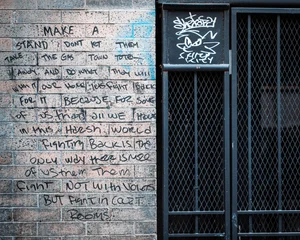 MAKE A
STAND DON'T LET THEM
TAKE THE GAS TOWN TOTE
AWAY AND DO WHAT THEY WILL
WHAT OUR FIGHT BACK
FOR IT BECAUSE FOR SOME
of us that all we Have
in this Harsh world
Fighting BACK is the
only way there is more
of us then Them
Fight NOT with
BUT FIGHT IN COURT
ROOMS.